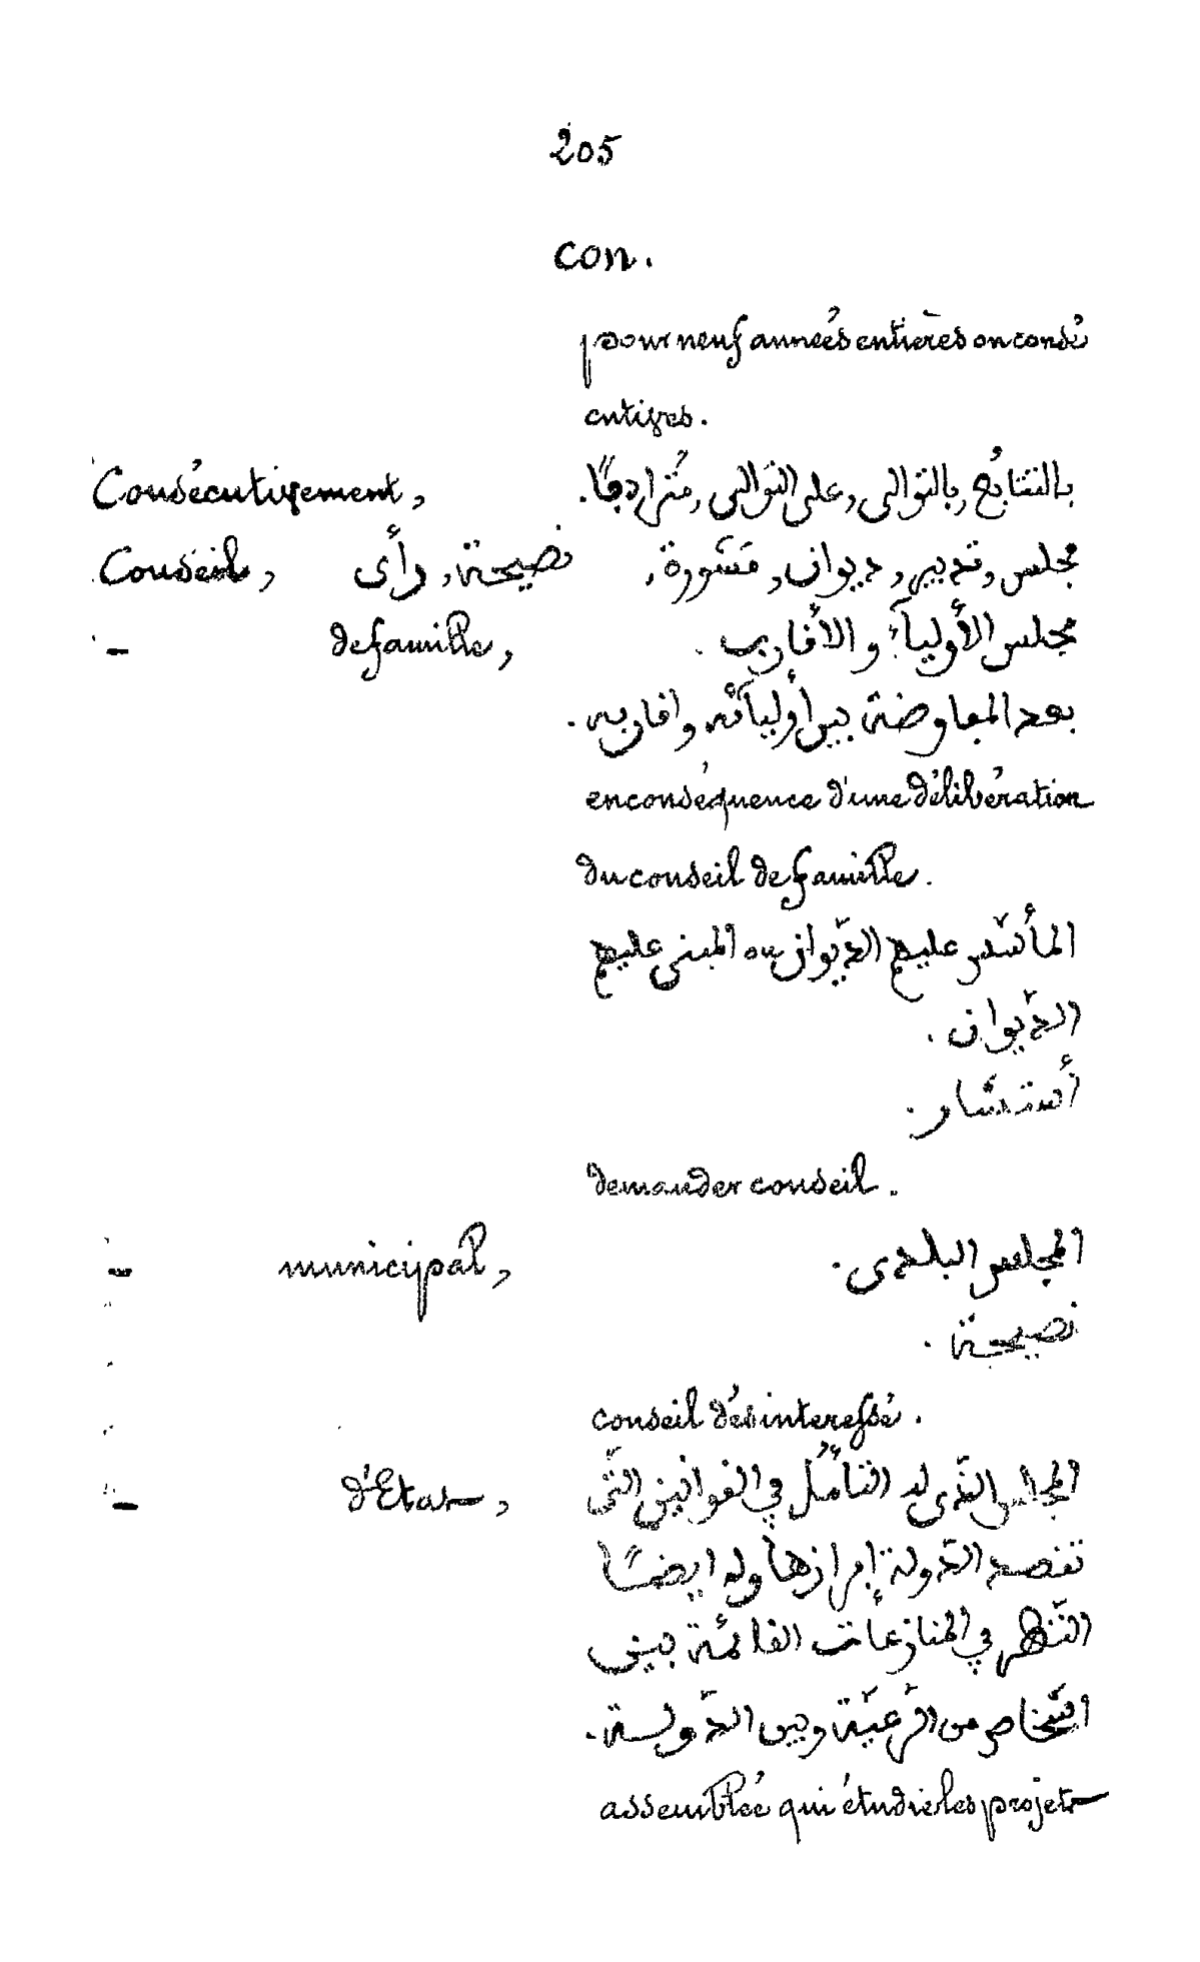 205
con.
pour neuf années entières on consé
cutives.
Consécutivement, بالتتابُع, بالتوالى, على التوالى, مُترادفًا.
Conseil, نصيحة, رأى, مجلس, تدبير, ديوان, مَشَورة,
- de famille, مجلس الأوليآء والأفارب.
بعد المفاوضة بين أوليآئه وافاربه.
en conséquence d'une délibération
du conseil de famille.
المأسّس عليه الدّيوان ou المبنى عليه
الدّيوان.
أستشار.
demander conseil.
- municipal, المجلس البلدى.
نصيحة.
conseil désinteressé.
- d'Etat, المجلس الذّى له التأمُّل في الفوانين التّى
تفصد الدّولة إبرازها وله ايضًا
النّظر في المنازعات الفائمة بين
اشخاص من الرّعيّة وبين الدّولة.
assemblée qui étudie les projets